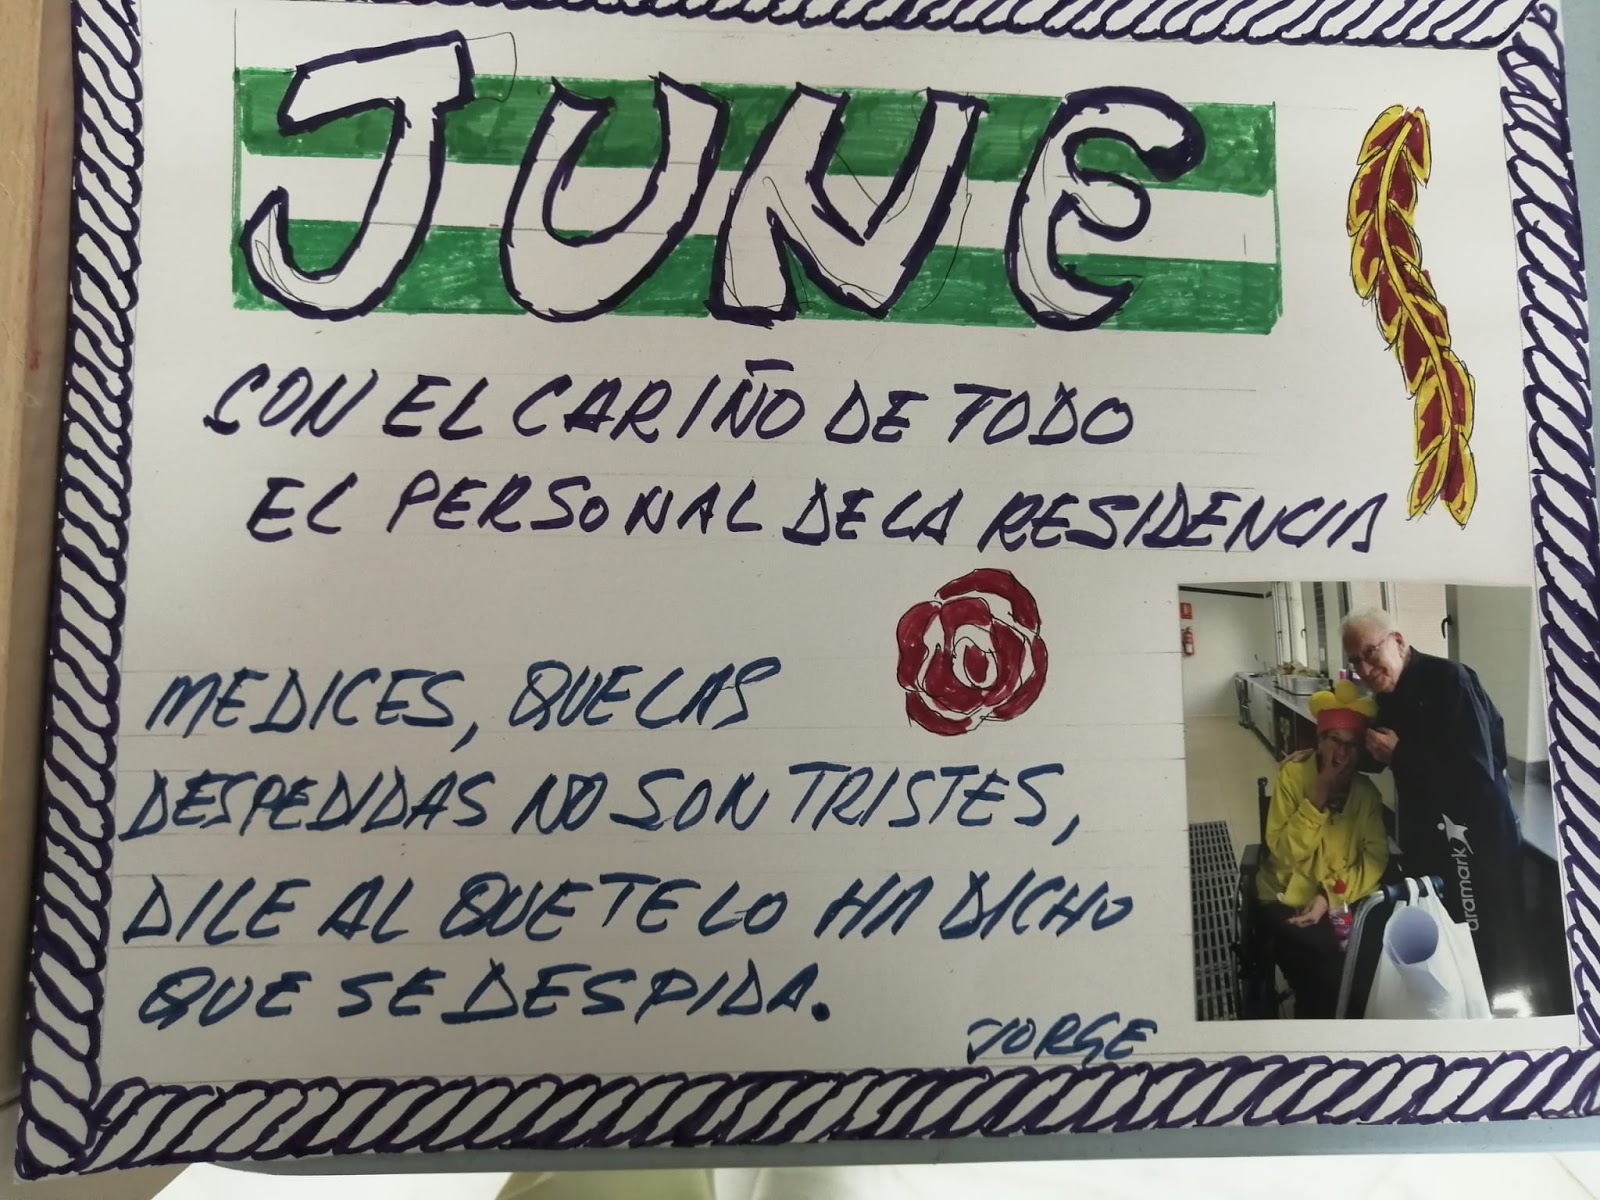 JUNE
CON EL CARIÑO DE TODO
EL PERSONAL DE LA RESIDENCIA
ME DICES, QUE LAS
DESPEDIDAS NO SON TRISTES,
DILE AL QUE TE LO HA DICHO
QUE SE DESPIDA.
JORGE
aramark